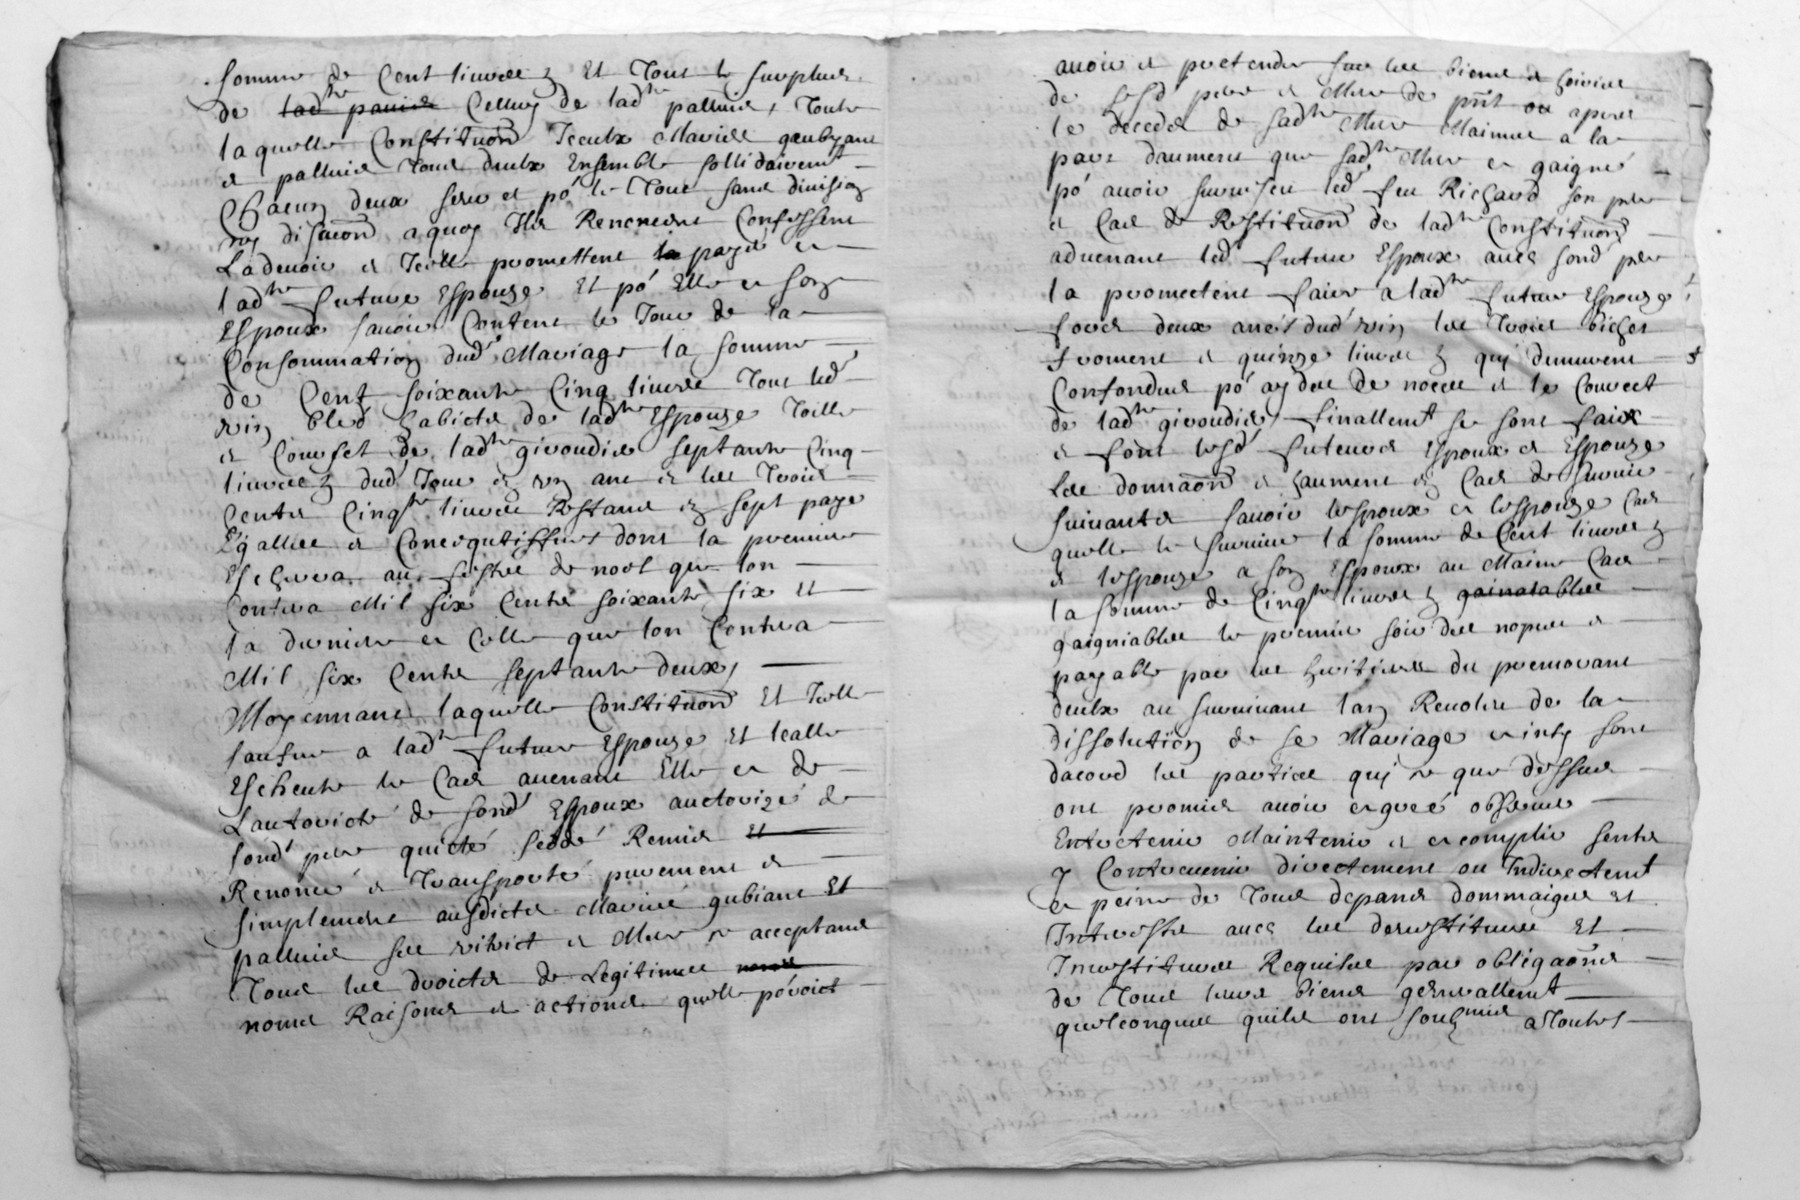 somme de Cent livres Et Tout le surplus
de ladte pallue Celluy de ladte pallue, Toute
laquelle Constituon Iceulx Maries gaubyant
et palluie Tous deulx Ensemble sollidairemt
Chacun deux seul et po' le Tout sans division
ny discuon a quoy Ils Renoncent Confessent
Ladevoir et Icelle promettent la payé a
ladte future Espouze Et po' Elle a son
Espoux savoir Contant le Jour de la
Consommation dud' Mariage la somme
de Cent soixante Cinq livres Tout led'
vin bled habictz de ladte Espouze Toille
et Coufset de ladte givoudie septante Cinq
livres dud' Jour en ung an et les Trois
Centz Cinqte livres Restant en sept paye
Egalles et Consequtifves dont la premiere
Eschera au feste de noel que lon
Contera Mil six Centz soixante six et
la derniere a Celle que lon Contera
Mil six Centz septante deux,
Moyennant laquelle Constituon Et Icelle
saufve a ladte future Espouze Et lealle
Escheute le Cas avenant Elle a de
Lautorité de sond' Espoux auctorizé de
sond' pere quicté Ceddé Remis Et
Renoncé et Transporté purement et
simplement ausdictz Mariés gubiant Et
palluie ses et Mere acceptant
Tous les droictz de Legitimes noms
noms Raisons et actions quelle pouvoict
avoir et pretendre sur les biens et hoirie
de sesd' pere et Mere de pnt ou apres
le decedz de sadte Mere Mesmes a la
part daument que sadte Mere a gaigné
po' avoir survescu led' feu Richard son pere
et Cas de Restituon de ladte Constituon
advenant led' futur Espoux avec sond' pere
la promectent faire a ladte future Espouze
fors deux aneés dud' vin les Trois bichet
froment et quinze livres qui demeurent
Confondus po' aydes de noces et le Couvect
de ladte givoudie, finallemt se sont faictz
et font lesd' futeurs Espoux et Espouze
Les donnaon et haument en Cas de survie
suivantz savoir lespoux a lespouze Cas
quelle le survive la somme de Cent livres
et lespouze a son Espoux au Mesme Cas
la somme de Cinqte livres gainatables
gaigniables le premier soir des nopces et
payable par les heritiers du premourant
deulx au survivant lan Revolu de la
dissolution de se Mariage ainsy sont
dacord les parties qui ce que dessus
ont promis avoir agreé observer
Entretenir Maintenir et acomplir sentz
y Contrevenir directement ou Indirectemt
a peine de Tous depans dommaiges Et
Interestz avec les desvestitures Et
Investitures Requises par obligaons
de Tous leurs biens generallemt
quelconques quils ont soubzmis a Toutes